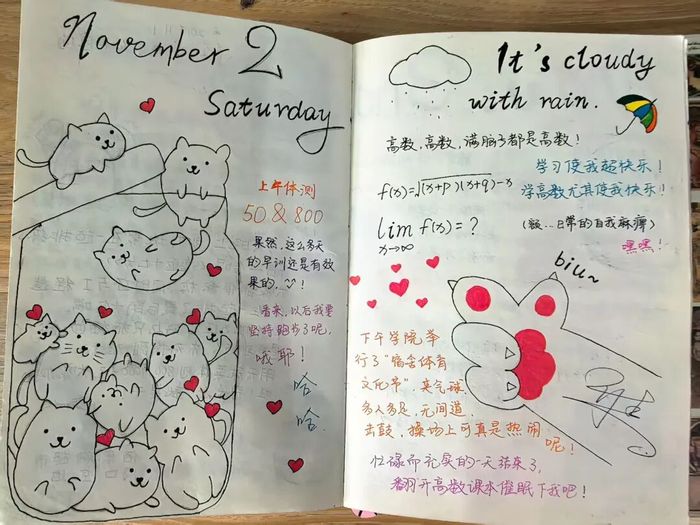 November 2
Saturday
上午体测
50 & 800
果然,这么多天
的早训还是有效
果的。!
看来,以后我要
坚持跑步了呢,
哦耶!
哈
哈.
It's cloudy
with rain.
高数,高数,满脑子都是高数!
学习使我超快乐!
f(x)=√(x+p)(x+q)-x
学高数尤其使我快乐!
lim f(x)=?
x→∞
(额…日常的自我麻痹)
嘿嘿!
biu~
下午学院举
行了"宿舍体育
文化节",夹气球,
多人多足,无间道,
击鼓,操场上可真是热闹
呢!
忙碌而充实的一天结束了,
翻开高数课本催眠下我吧!